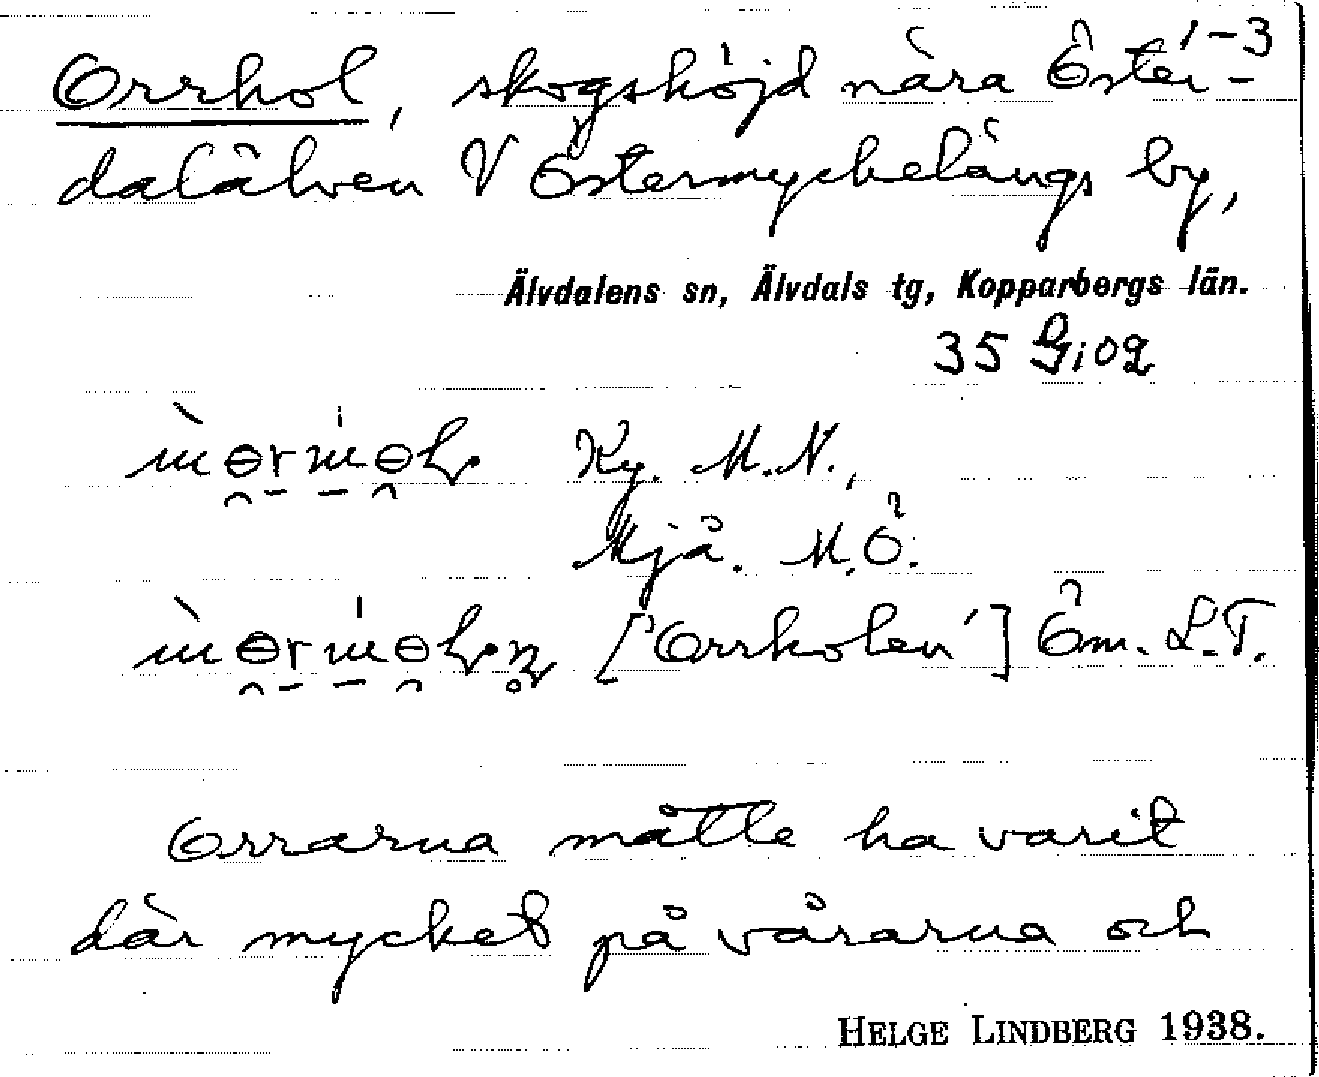 1-3
Orrhol, skogshöjd nära Öster-
dalälven V Östermyckelängs by,
Älvdalens sn, Älvdals tg, Kopparbergs län.
35 Gi 09
Ky. M.N.,
Mjå. M.Ö.
['Orrholen'] Öm. L.T.
Orrarna måtte ha varit
där mycket på vårarna och
HELGE LINDBERG 1938.